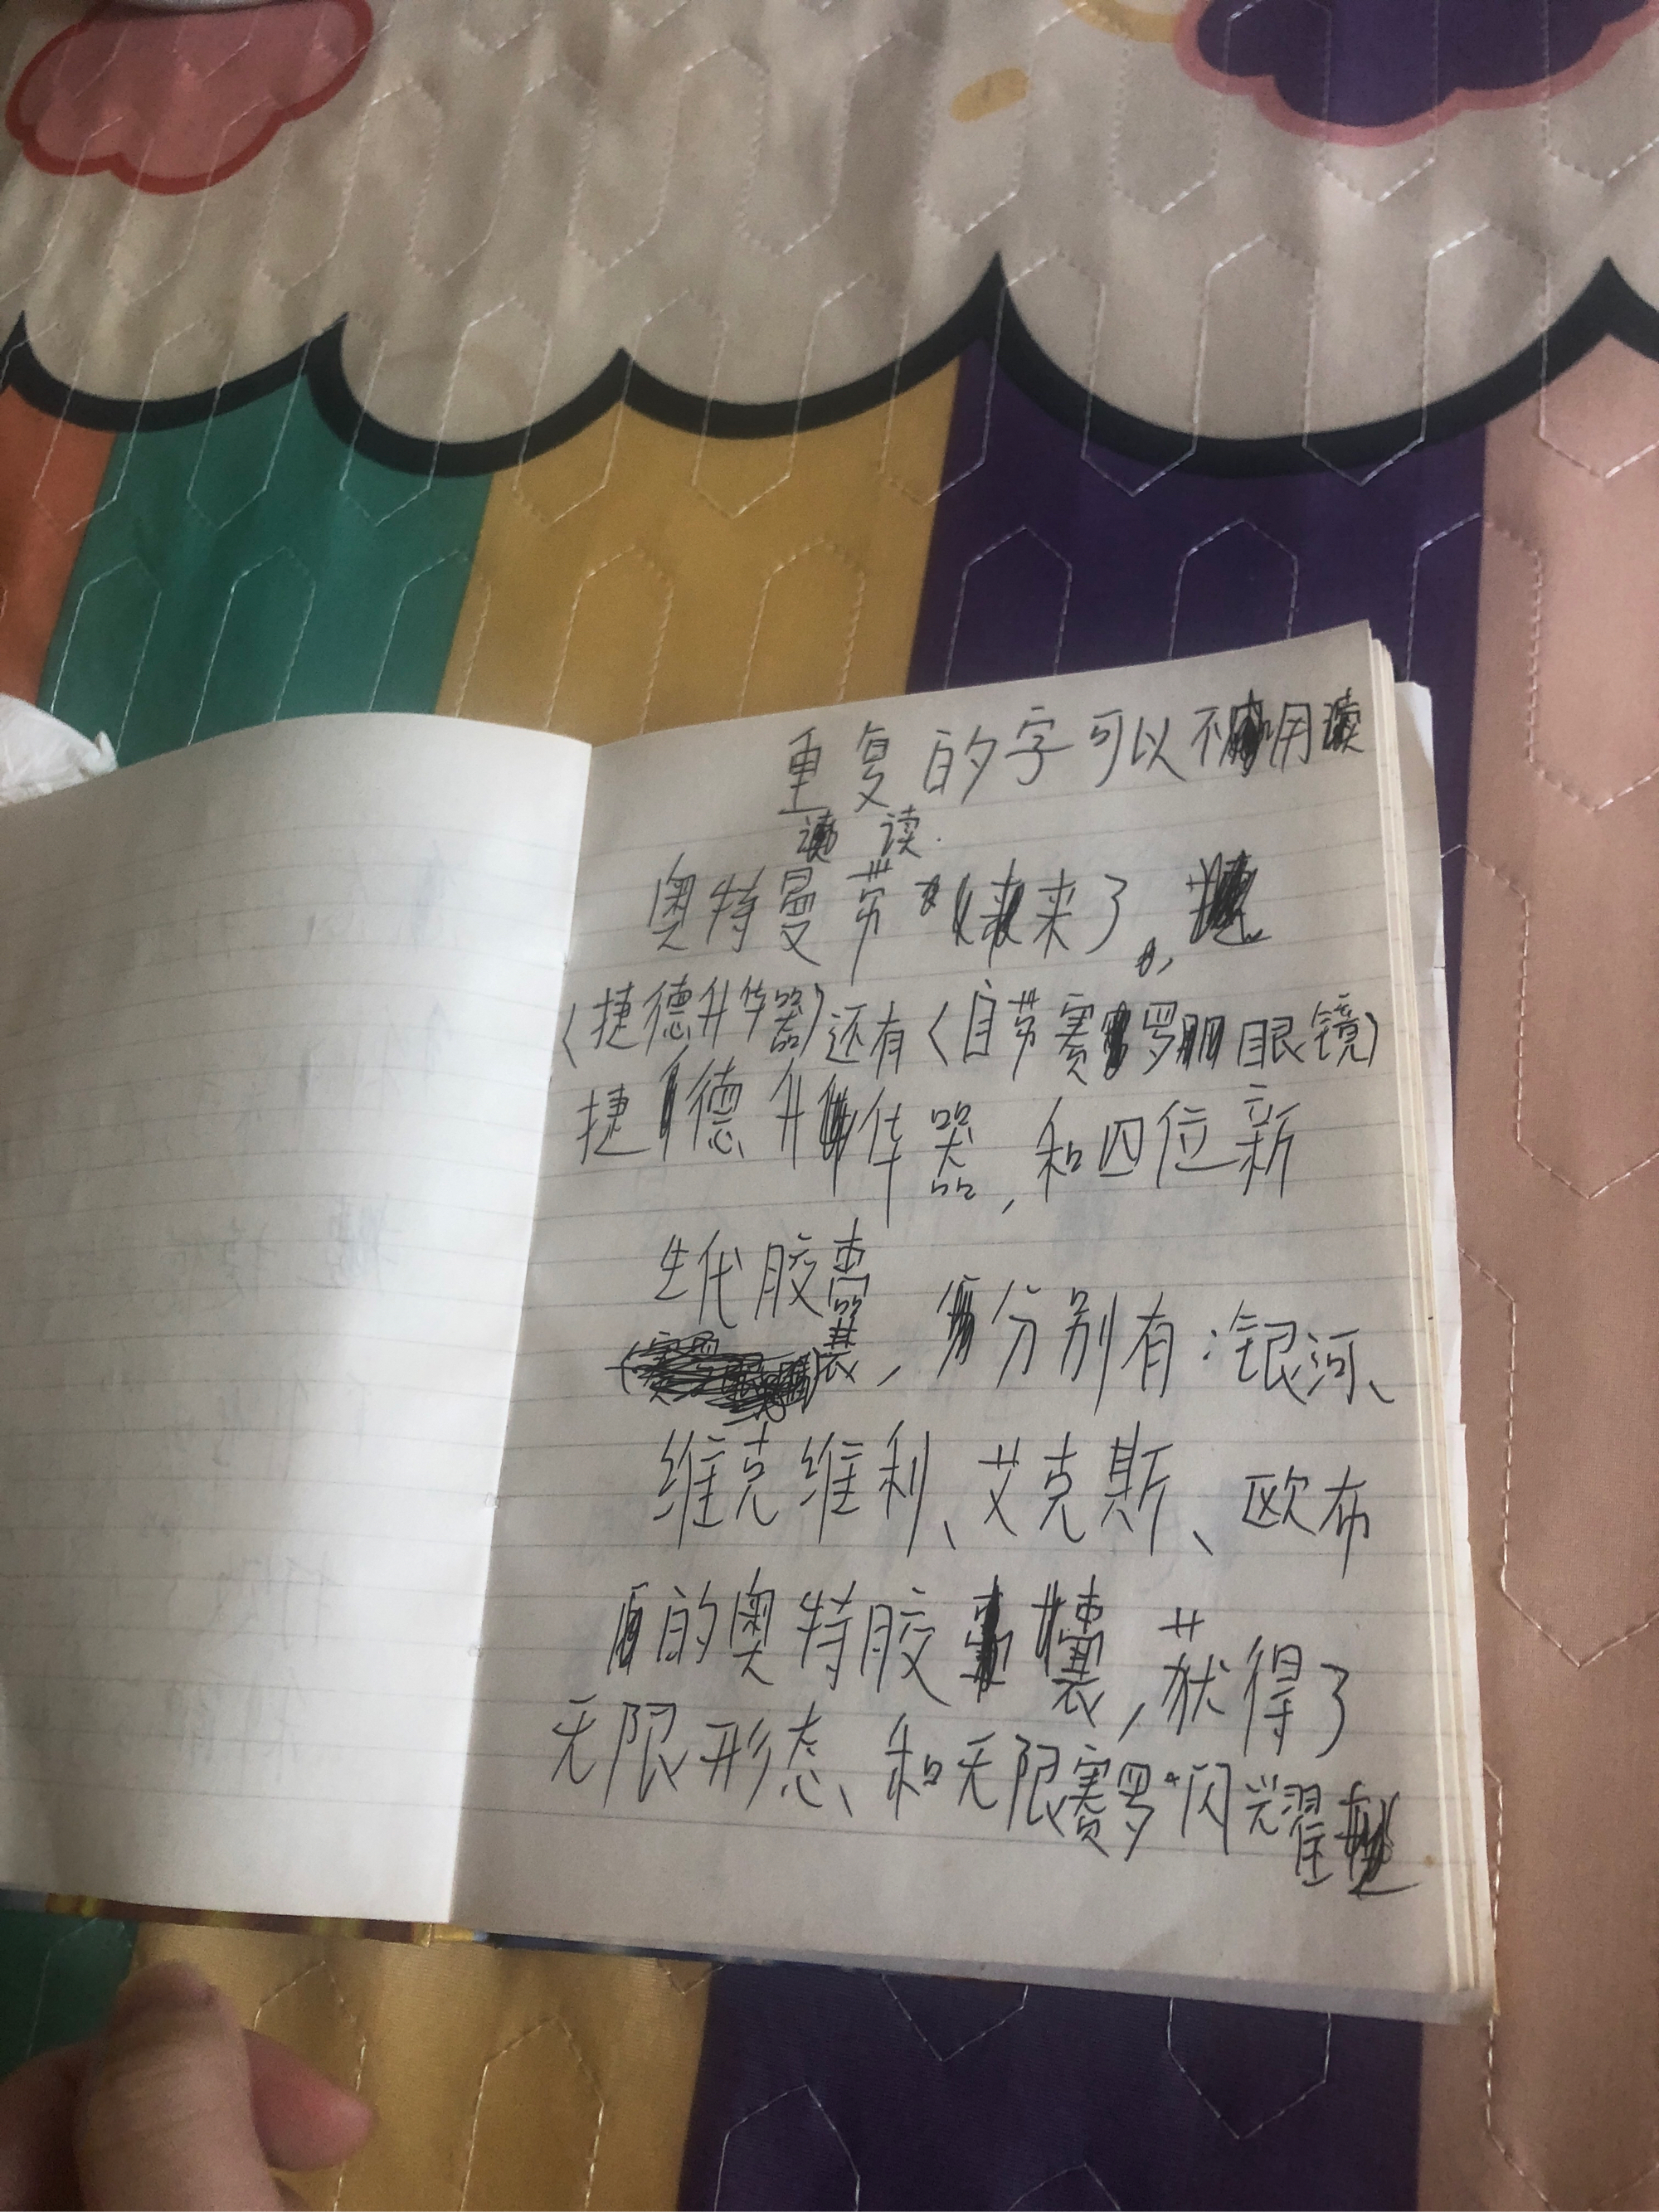 重复的字可以不用
读
奥特曼带来了
(捷德升华器)还有(自带赛罗眼镜)
捷德升华器,和四位新
生代胶囊,分别有:银河、
维克维利、艾克斯、欧布
的奥特胶囊,获得了
无限形态、和无限赛罗闪耀